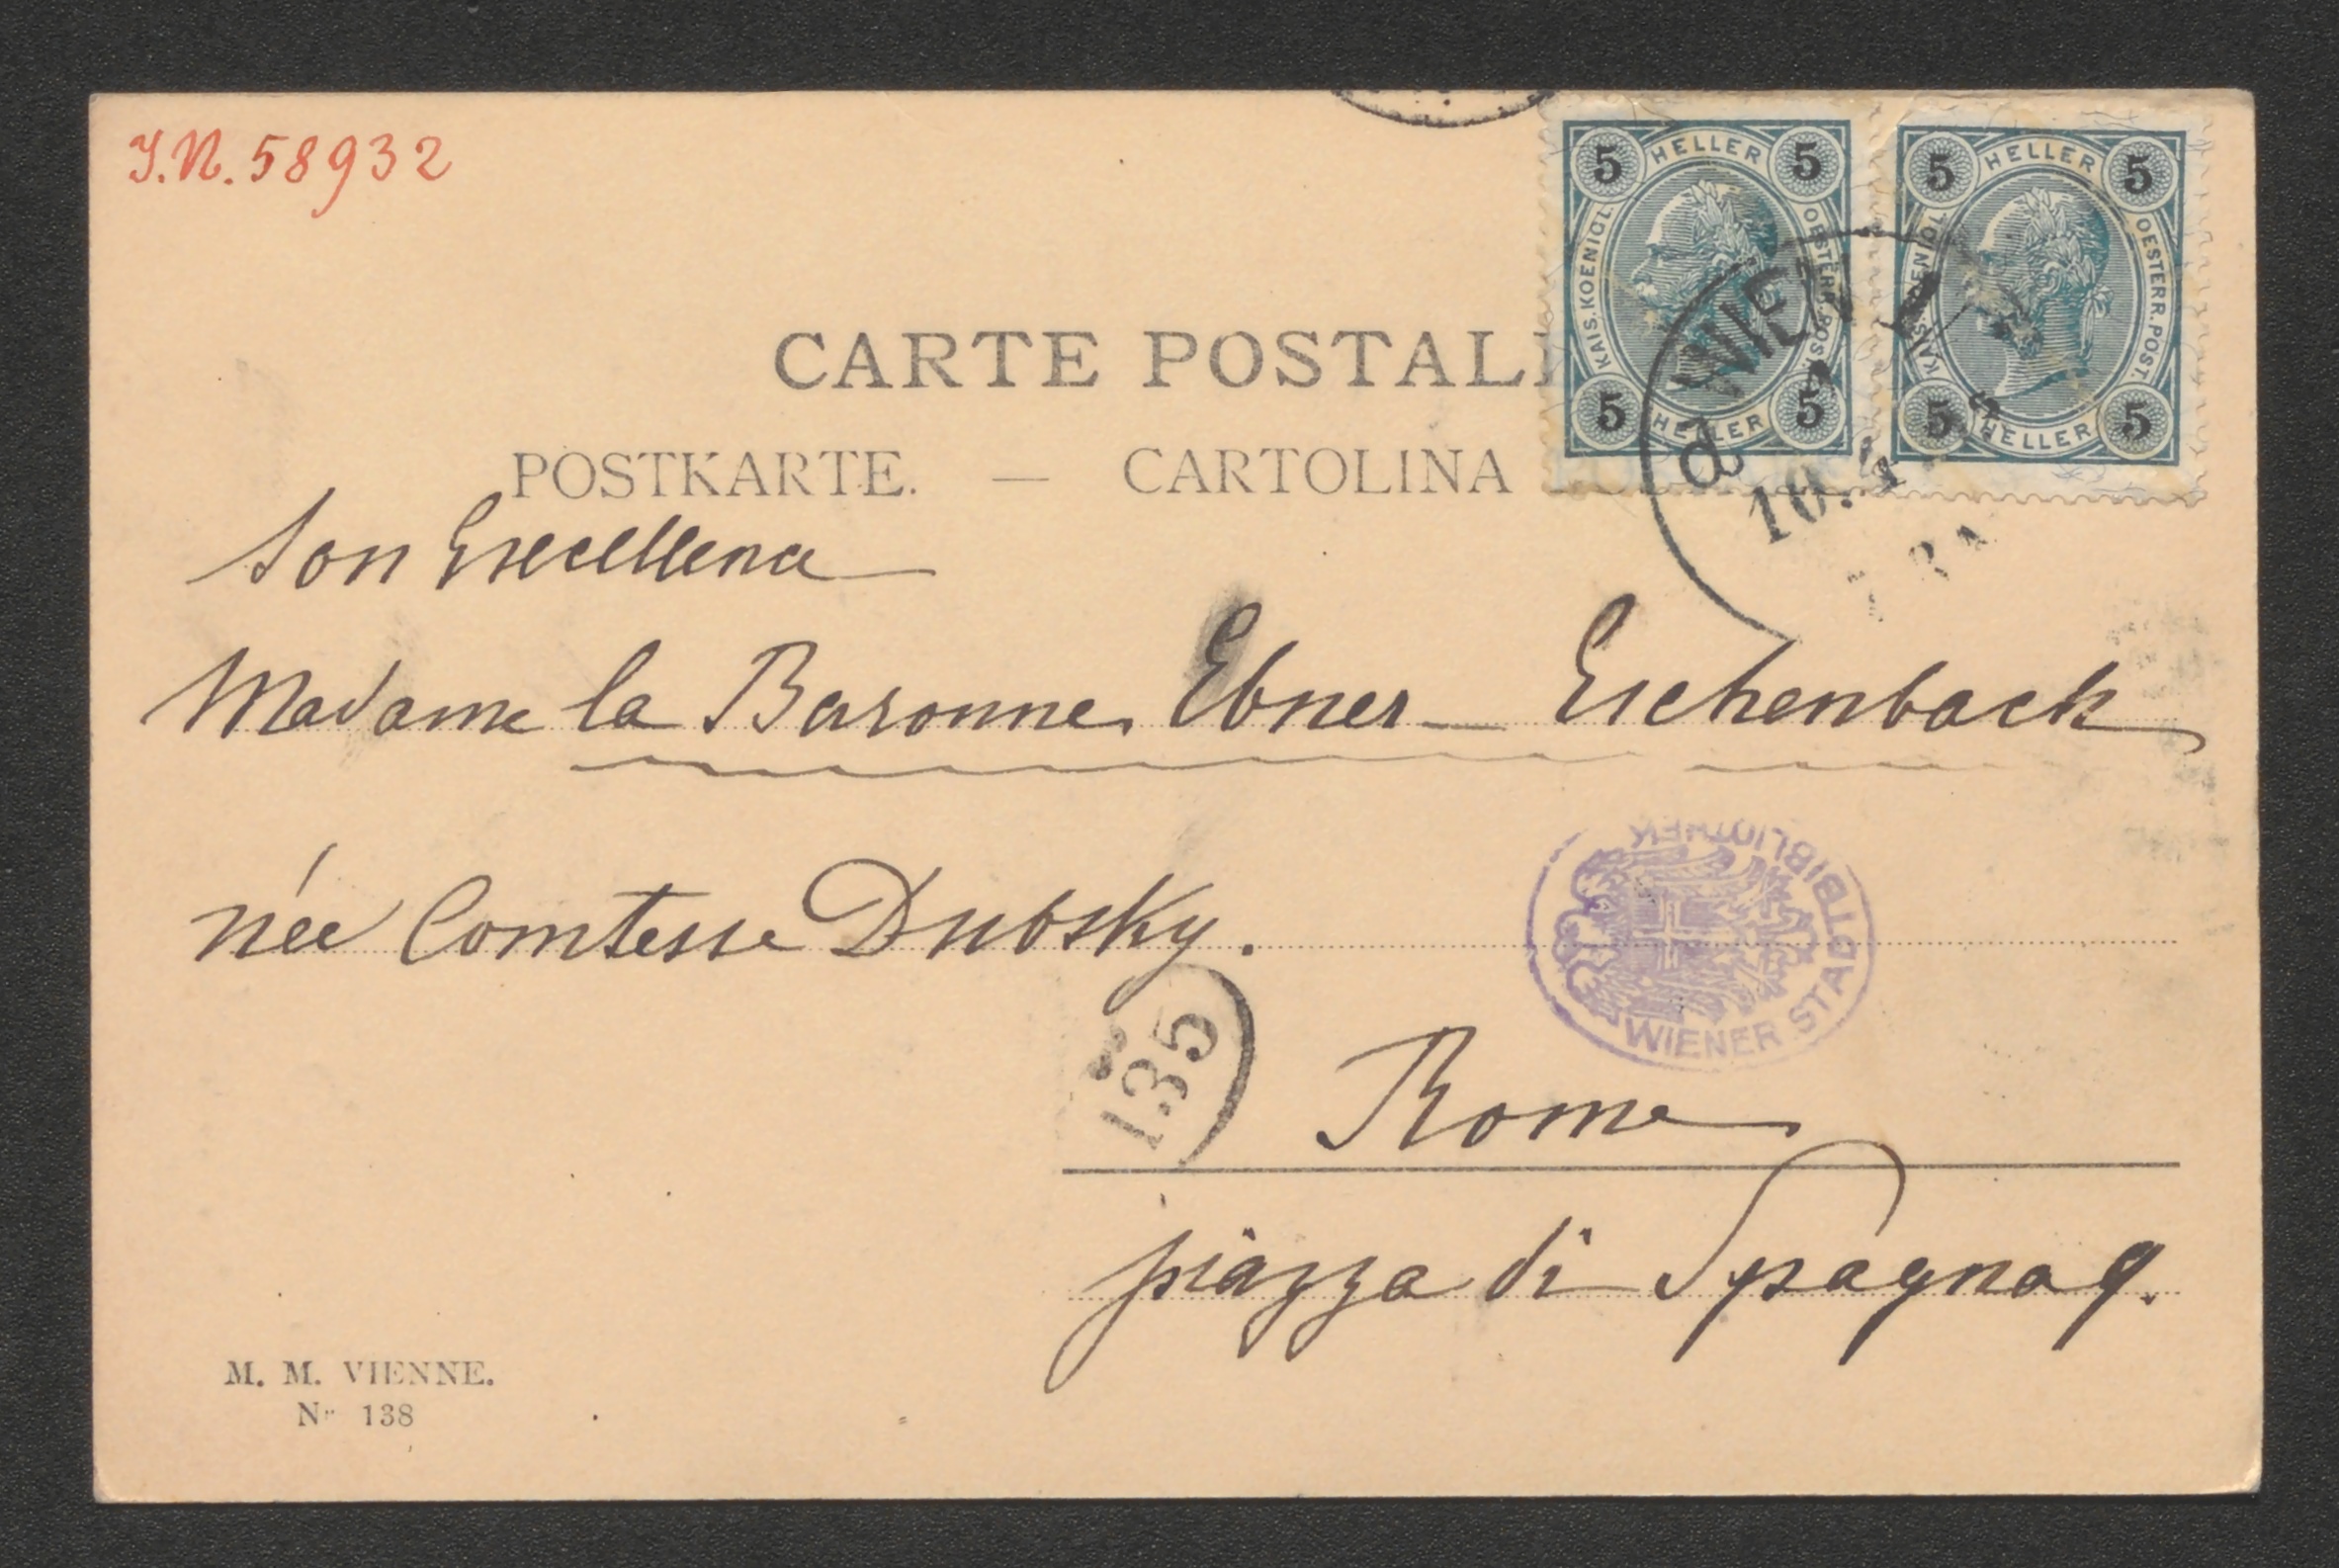 J.N. 58932
5 HELLER 5
KAIS. KOENIGL. OESTERR. POST.
5 HELLER 5
5 HELLER 5
KAIS. KOENIGL. OESTERR. POST.
5 HELLER 5
WIEN
10.
CARTE POSTAL
POSTKARTE. — CARTOLINA
Son Excellence
Madame la Baronne Ebner-Eschenbach
née Comtesse Dubsky.
WIENER STADTBIBLIOTHEK
135
Rome
piazza di Spagna 9.
M. M. VIENNE.
Nr 138